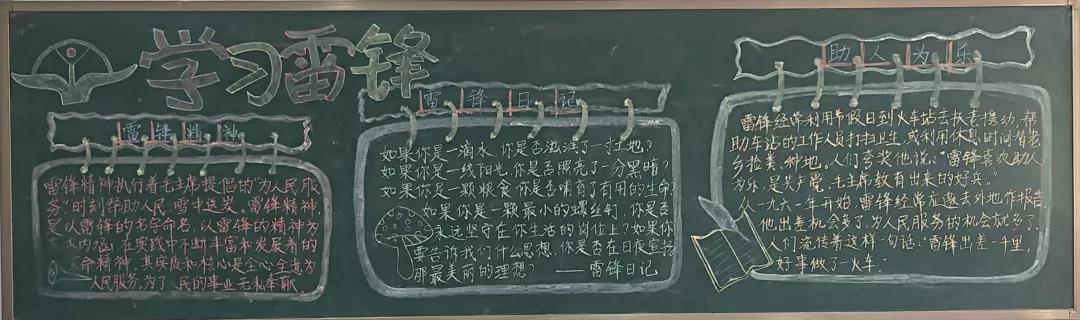 学习雷锋
雷锋精神
雷锋精神执行着毛主席提倡的"为人民服
务"时刻帮助人民,雪中送炭,雷锋精神,
是以雷锋的名字命名,以雷锋的精神为
内涵,在实践中不断丰富和发展着的
命精神,其实质和核心是全心全意为
人民服务,为了人民的事业无私奉献。
雷锋日记
如果你是一滴水,你是否滋润了一寸土地?
如果你是一线阳光,你是否照亮了一分黑暗?
如果你是一颗粮食,你是否哺育了有用的生命?
如果你是一颗最小的螺丝钉,你是否
永远坚守在你生活的岗位上?如果你
要告诉我们什么思想,你是否在日夜宣扬
那最美丽的理想?
——雷锋日记
助人为乐
雷锋经常利用节假日到火车站去扶老携幼,帮
助车站的工作人员打扫卫生,或利用休息时间帮老
乡拾粪、种地。人们夸奖他说:"雷锋喜欢助人
为乐,是共产党,毛主席教育出来的好兵。"
从一九六一年开始,雷锋经常应邀去外地作报告,
他出差机会多了,为人民服务的机会就多了,
人们流传着这样一句话:"雷锋出差一千里,
好事做了一火车。"